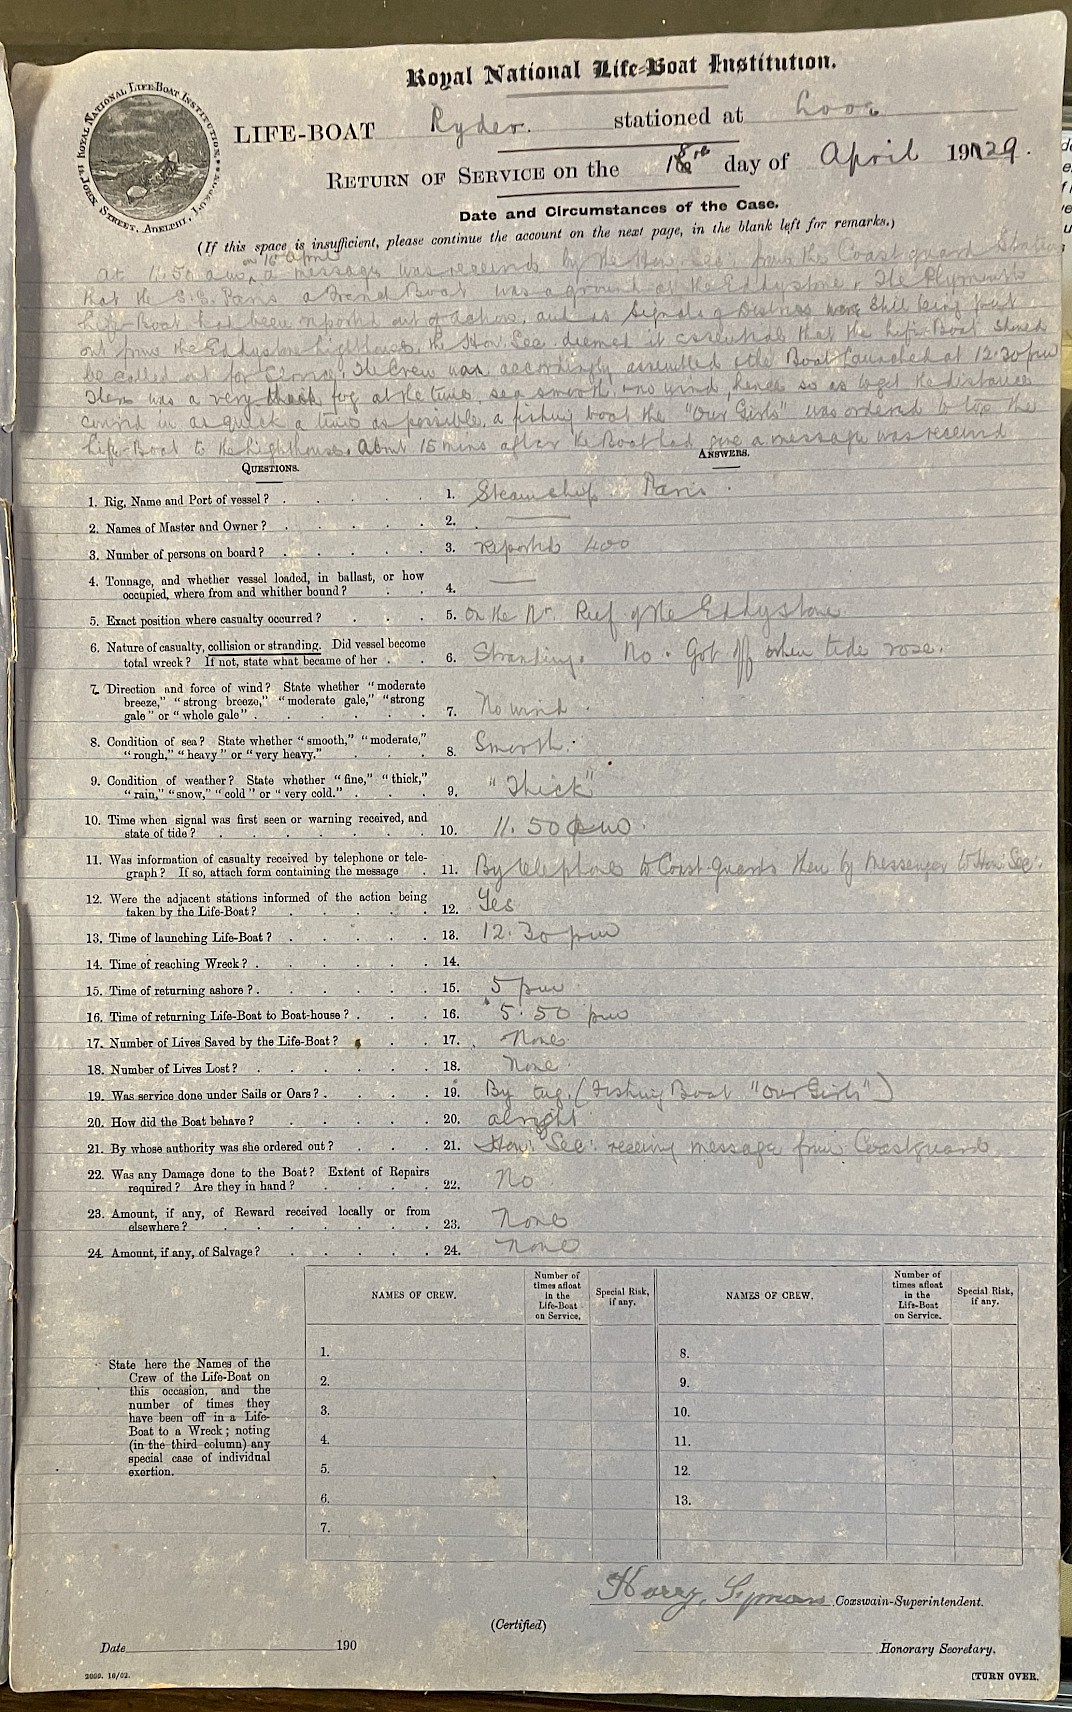 Royal National Life-Boat Institution.
ROYAL NATIONAL LIFE-BOAT INSTITUTION
JOHN STREET, ADELPHI, LONDON
LIFE-BOAT Ryder. stationed at Looe
RETURN OF SERVICE on the 18th day of April 1929.
Date and Circumstances of the Case.
(If this space is insufficient, please continue the account on the next page, in the blank left for remarks.)
on 18 April
At 11.50 a.m. a message was received by the Hon: Sec: from the Coastguard Station
that the S.S. Paris a French Boat was aground at the Eddystone & the Plymouth
Life-Boat had been reported out of action, and as signals of distress were still being sent
out from the Eddystone lighthouse, the Hon. Sec. deemed it essential that the Life-Boat should
be called out for service. The Crew was accordingly assembled & the Boat launched at 12.30 pm
There was a very thick fog at the time, sea smooth & no wind, hence so as to get the distance
covered in as quick a time as possible, a fishing boat the "Our Girls" was ordered to tow the
Life-Boat to the lighthouse. About 15 mins after the Boat had gone a message was received
QUESTIONS. ANSWERS.
1. Rig, Name and Port of vessel? 1. Steamship Paris.
2. Names of Master and Owner? 2.
3. Number of persons on board? 3. reported 400
4. Tonnage, and whether vessel loaded, in ballast, or how
occupied, where from and whither bound? 4.
5. Exact position where casualty occurred? 5. On the Nn. Reef of the Eddystone
6. Nature of casualty, collision or stranding. Did vessel become
total wreck? If not, state what became of her 6. Stranding. No. Got off when tide rose.
7. Direction and force of wind? State whether "moderate
breeze," "strong breeze," "moderate gale," "strong
gale" or "whole gale" 7. No wind.
8. Condition of sea? State whether "smooth," "moderate,"
"rough," "heavy" or "very heavy." 8. Smooth.
9. Condition of weather? State whether "fine," "thick,"
"rain," "snow," "cold" or "very cold." 9. "Thick"
10. Time when signal was first seen or warning received, and
state of tide? 10. 11.50
11. Was information of casualty received by telephone or tele-
graph? If so, attach form containing the message 11. By telephone to Coast-guards then by messenger to Hon Sec:
12. Were the adjacent stations informed of the action being
taken by the Life-Boat? 12. Yes
13. Time of launching Life-Boat? 13. 12.30 pm
14. Time of reaching Wreck? 14.
15. Time of returning ashore? 15. 5 pm
16. Time of returning Life-Boat to Boat-house? 16. 5.50 pm
17. Number of Lives Saved by the Life-Boat? 17. None
18. Number of Lives Lost? 18. None
19. Was service done under Sails or Oars? 19. By tug. (Fishing Boat "Our Girls")
20. How did the Boat behave? 20. alright
21. By whose authority was she ordered out? 21. Hon: Sec: receiving message from Coastguard
22. Was any Damage done to the Boat? Extent of Repairs
required? Are they in hand? 22. No
23. Amount, if any, of Reward received locally or from
elsewhere? 23. None
24. Amount, if any, of Salvage? 24. None
NAMES OF CREW. Number of times afloat in the Life-Boat on Service. Special Risk, if any. NAMES OF CREW. Number of times afloat in the Life-Boat on Service. Special Risk, if any.
State here the Names of the
Crew of the Life-Boat on
this occasion, and the
number of times they
have been off in a Life-
Boat to a Wreck; noting
(in the third column) any
special case of individual
exertion.
1. 8.
2. 9.
3. 10.
4. 11.
5. 12.
6. 13.
7.
Harry Symons Coxswain-Superintendent.
(Certified)
Date 190 Honorary Secretary.
2000. 10/02. [TURN OVER.